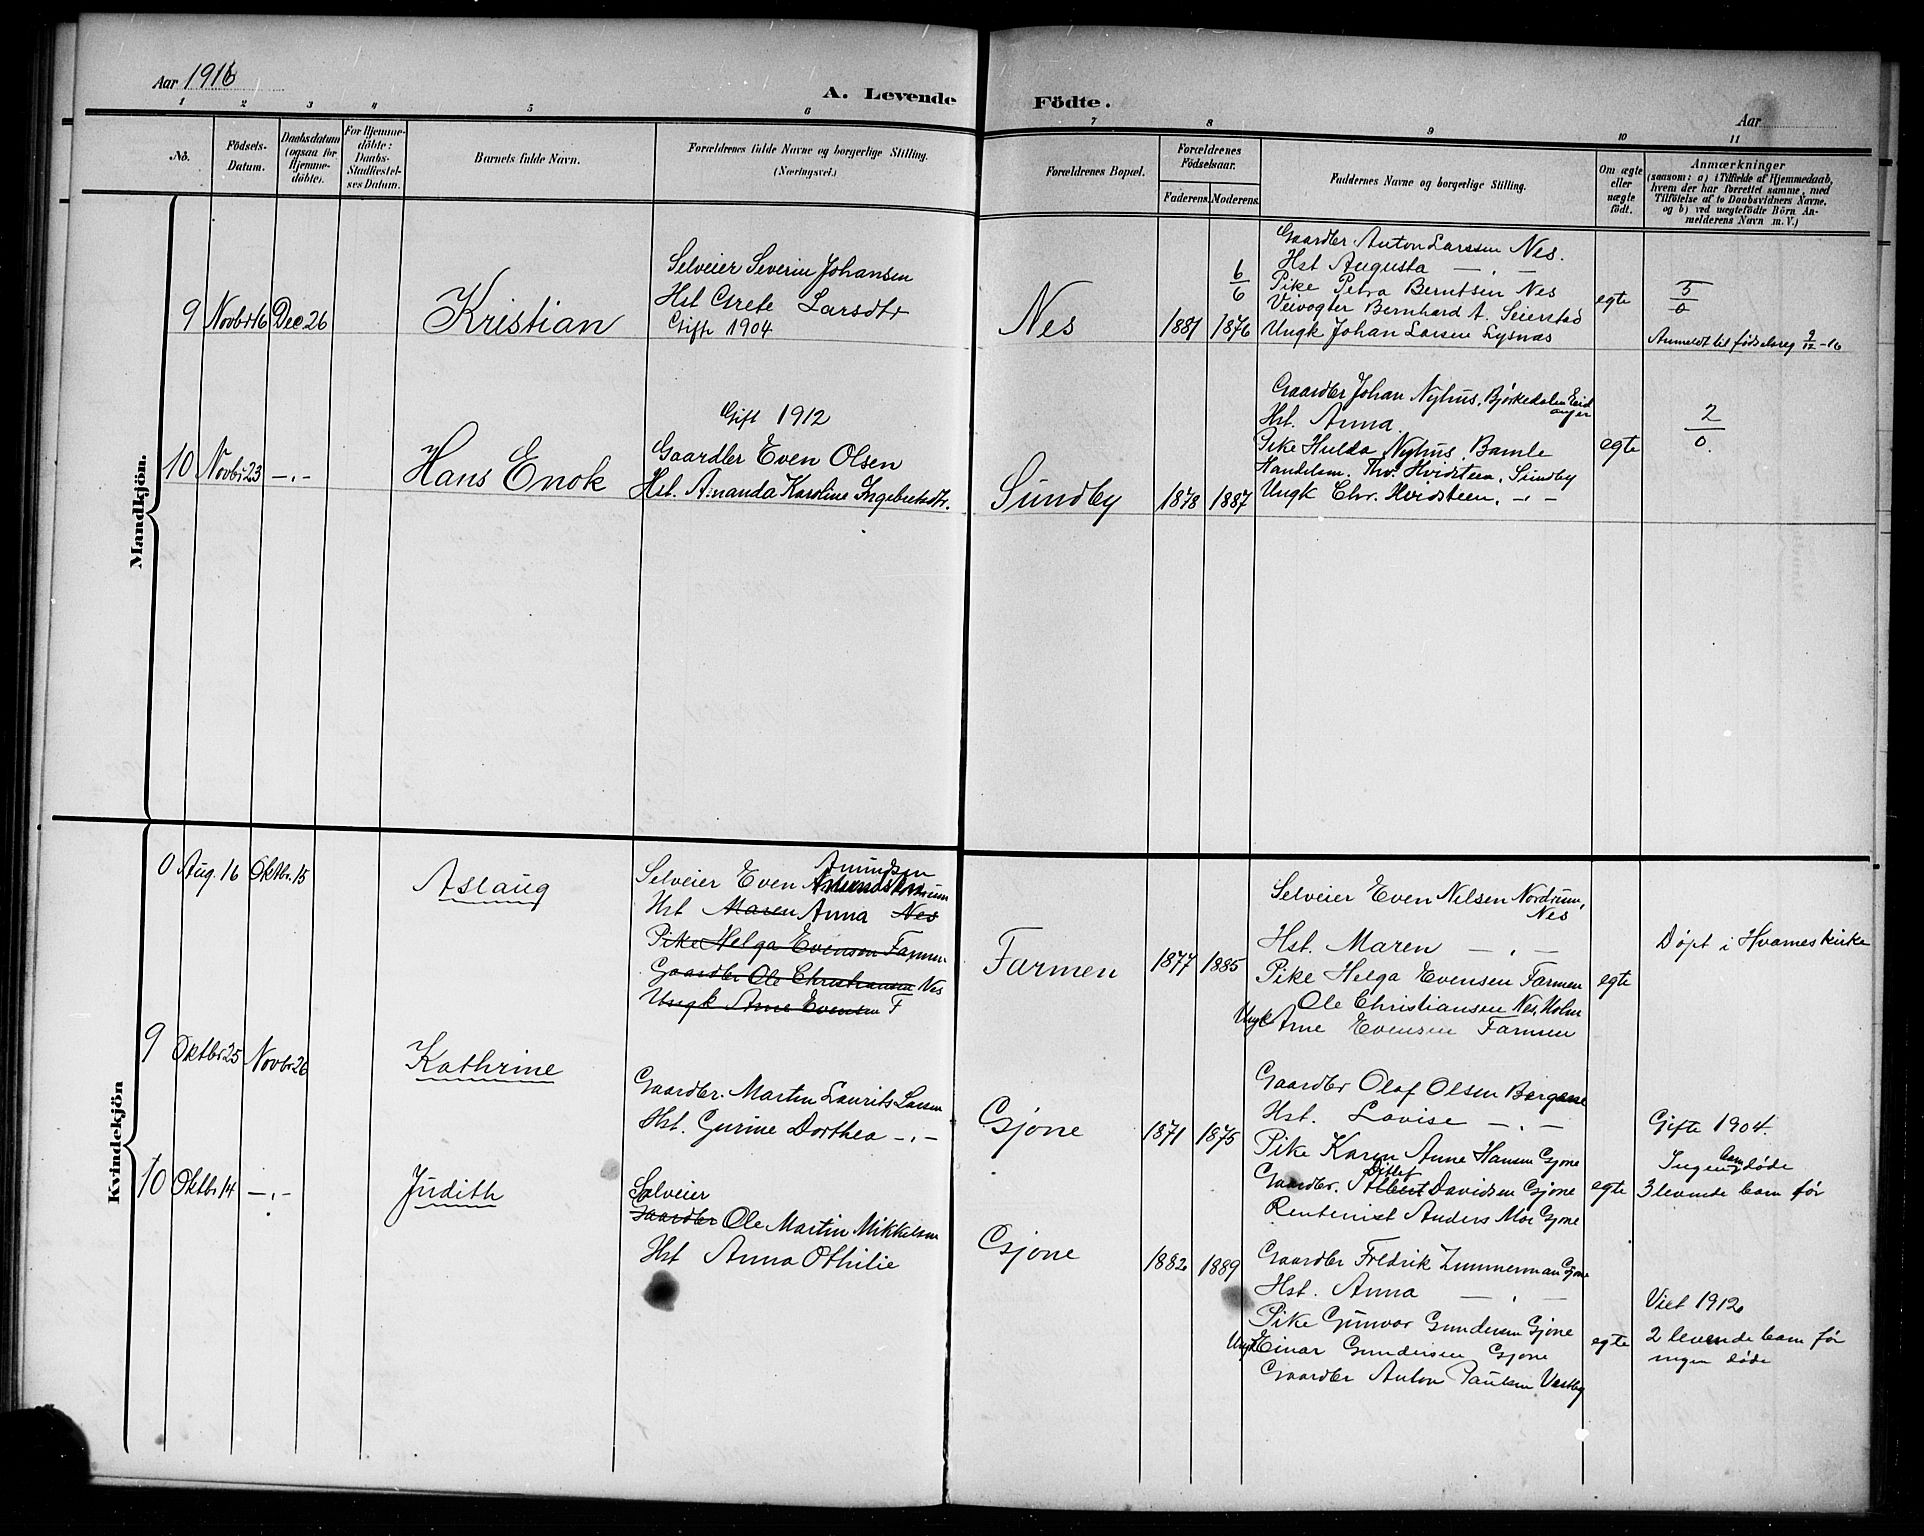 Aar 1916
A. Levende
Födte.
Aar
1 2 3 4 5 6 7 8 9 10 11
No.
Födsels-
Datum.
Daabsdatum
(ogsaa for
Hjemme-
döbte).
For Hjemme-
döbte:
Daabs-
Stadfæstel-
ses Datum.
Barnets fulde Navn.
Forældrenes fulde Navne og borgerlige Stilling.
(Næringsvei.)
Forældrenes Bopæl.
Forældrenes
Födselsaar.
Faderens. Moderens.
Faddernes Navne og borgerlige Stilling.
Om ægte
eller
uægte
födt.
Anmærkninger
(saasom: a) i Tilfælde af Hjemmedaab,
hvem der har forrettet samme, med
Tilföielse af to Daabsvidners Navne.
og b) ved uægtefödte Börn An-
melderens Navn m. V.)
Mandkjön.
9 Novbr 16 Dec 26
Kristian
Selveier Severin Johansen
Hst Grete Larsdtr
Gift 1904
Nes
1881
6/6
1876
Gaardbr Anton Larssen Nes.
Hst Augusta — " —
Pike Petra Berntsen Nes
Veivogter Bernhard A. Seierstad
Ungk Johan Larsen Lysnæs
egte
5/0
Anmeldt til fødselsreg 9/12-16
10 Novbr 23 — " —
Hans Enok
Gift 1912
Gaardbr Even Olsen
Hst. Amanda Karoline Ingebretsdtr.
Sundby
1878 1887
Gaardbr Johan Nyhus, Bjørkedalen Eid
anger
Hst. Anna.
Pike Hulda Nyhus, Bamle
Handelsm. Thv. Hvidsteen, Sundby
Ungk Chr. Hvidsteen, — " —
egte
2/0.
Kvindekjön
0 Aug. 16 Oktbr. 15
Aslaug
Amundsen
Selveier Even
Hst Maren Anna Nes
Pike Helga Evensen Farmen
Gaardbr Ole Christiansen Nes
Ungk Arne Evensen F
Farmen
1877 1885
Selveier Even Nilsen Nordrum,
Nes
Hst. Maren — " —
Pike Helga Evensen Farmen
Ole Christiansen Nes, Holm
Ungk Arne Evensen Farmen
egte
Døpt i Hvarnes kirke
9 Oktbr 25 Novbr 26
Kathrine
Gaardbr. Martin Laurits Larsen
Hst. Gurine Dorthea — " —
Gjone
1871 1875
Gaardbr Olaf Olsen Bergane
Hst. Lovise — " —
Pike Karen Anne Hansen Gjone
Ditlef
Gaardbr. Albert Davidsen Gjone
Rentenist Anders Moe Gjone
egte
Gifte 1904.
barn
Ingen døde
3 levende barn før
10 Oktbr 14 — " —
Judith
Selveier
Gaardbr Ole Martin Mikkelsen
Hst Anna Othilie
Gjone
1882 1889
Gaardbr Fredrik Zimmerman Gjone
Hst. Anna — " —
Pike Gunvor Gundersen Gjone
Ungk Einar Gundersen Gjone
Gaardbr Anton Paulsen Vestby
egte
Viet 1912
2 levende barn før
ingen døde